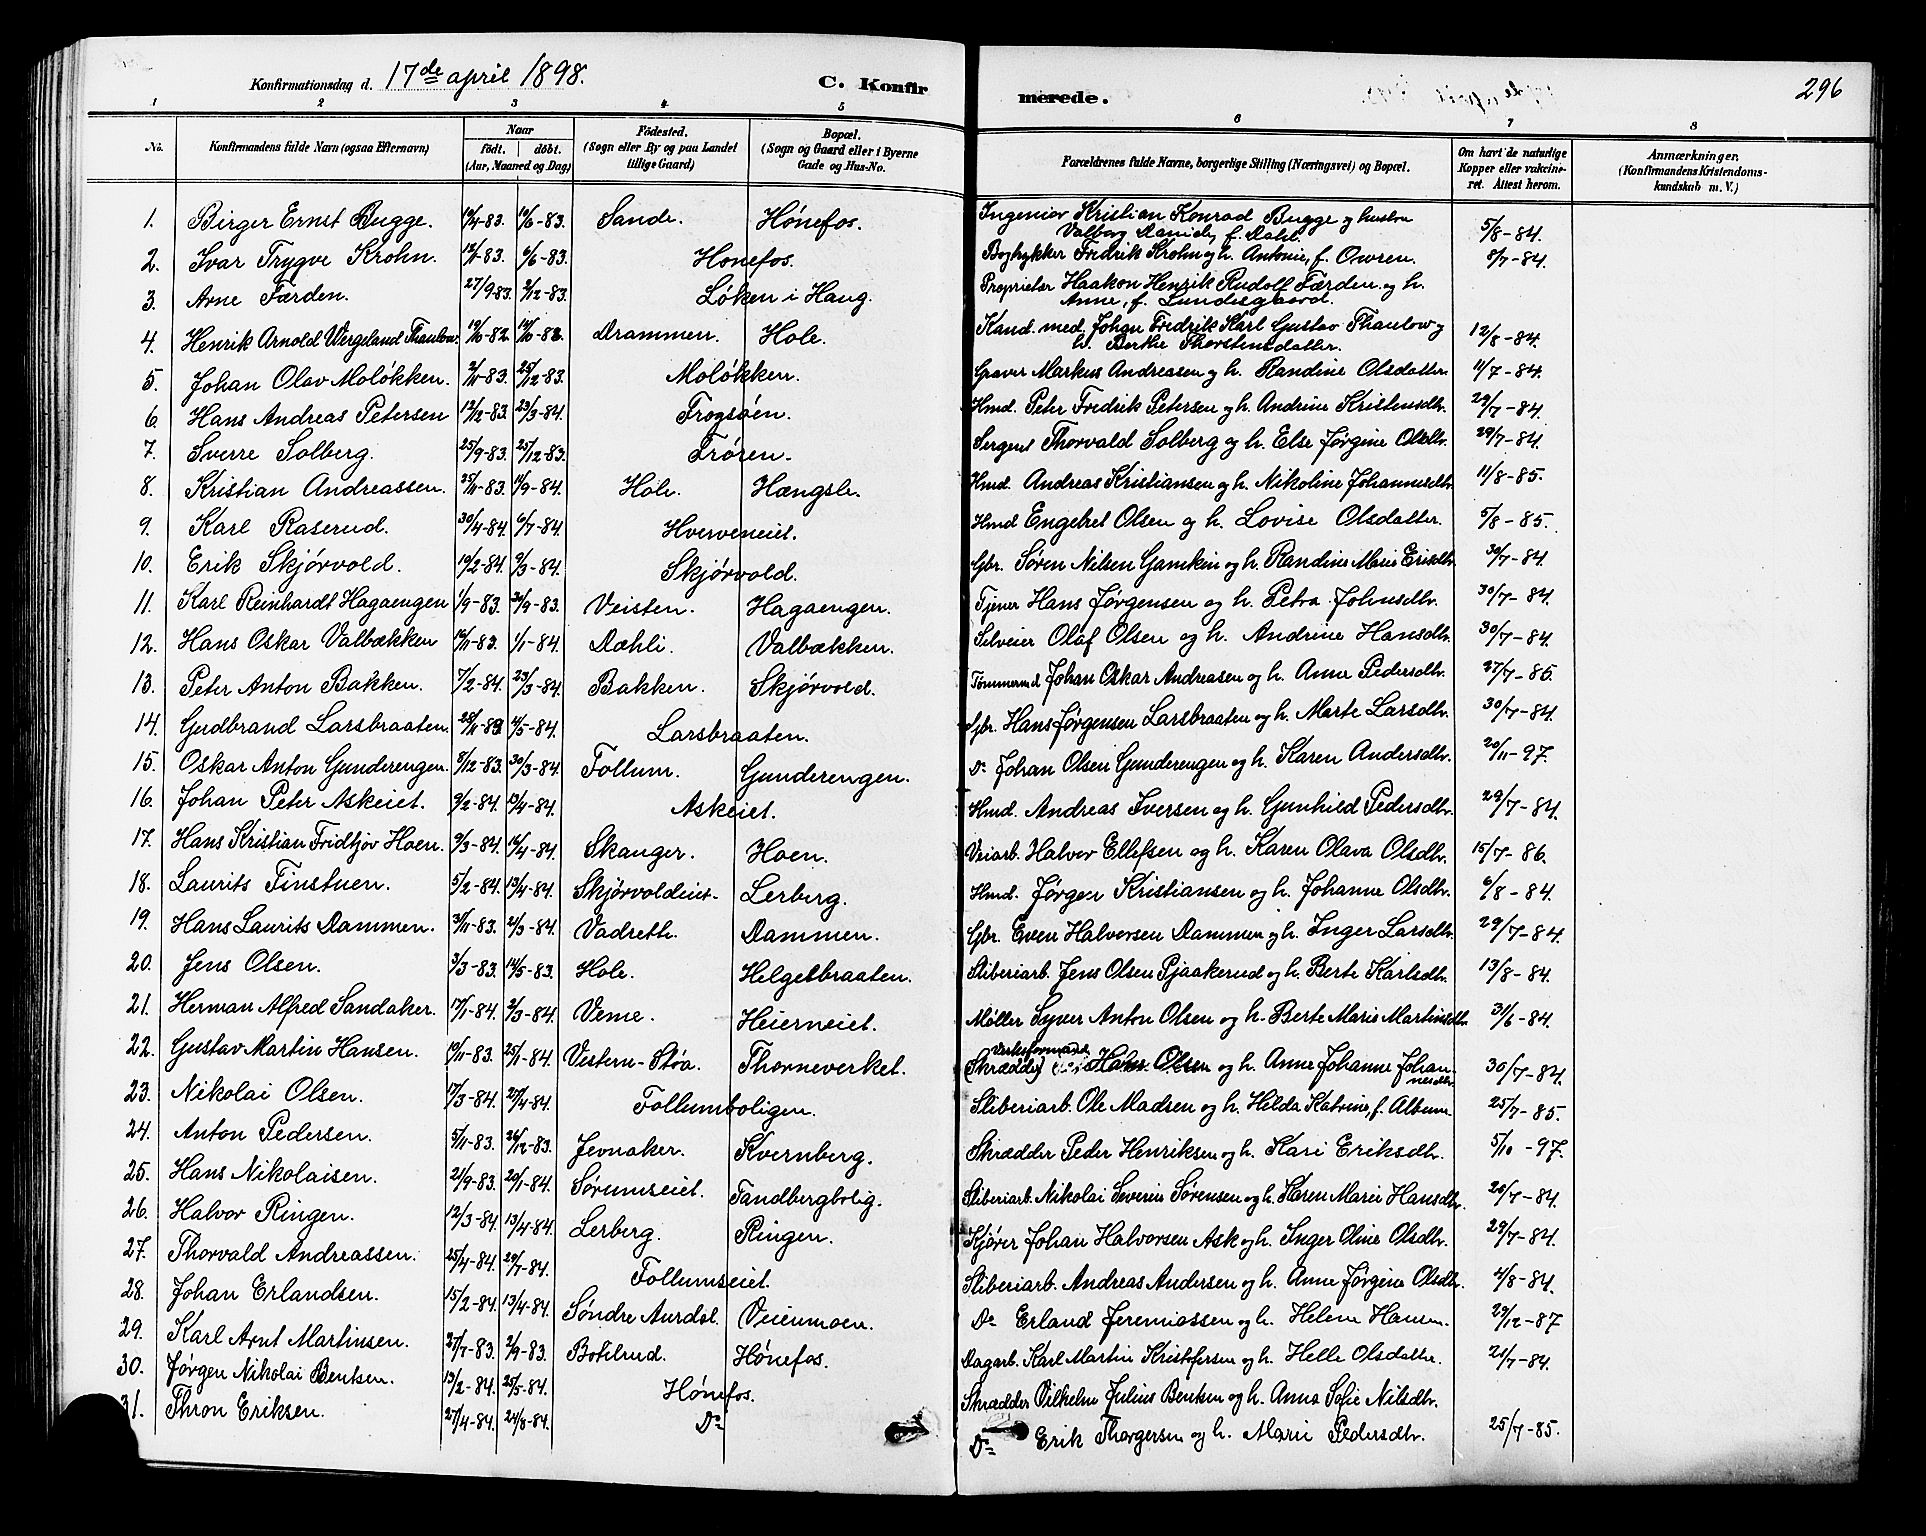 Konfirmationsdag d. 17de april 1898. C. Konfirmerede. 296
1 2 3 4 5 6 7 8
No. Konfirmandens fulde Navn (ogsaa Efternavn) Naar födt. döbt. (Aar, Maaned og Dag) Födested. (Sogn eller By og paa Landet tillige Gaard) Bopæl. (Sogn og Gaard eller i Byerne Gade og Hus-No. Forældrenes fulde Navne, borgerlige Stilling (Næringsvei) og Bopæl. Om havt de naturlige Kopper eller vakcineret. Attest herom. Anmærkninger. (Konfirmandens Kristendomskundskab m. V.)
1. Birger Ernst Bugge. 19/4-83. 10/6-83. Sande. Hönefos. Ingeniör Kristian Konrad Bugge og hustru Valborg f. Dahl. 5/8-84.
2. Ivar Trygve Krohn. 12/1-83. 6/6-83. Hönefos. Bogtrykker Fredrik Krohn og h. Antonie, f. Owren. 8/7-84.
3. Arne Færden. 27/9-83. 2/12-83. Löken i Haug. Proprietær Haakon Henrik Rudolf Færden og h. Anne, f. Lundesgaard.
4. Henrik Arnold Wergeland Thaulow. 19/10-82. Drammen. Hole. Kand. med. Johan Fredrik Karl Gustav Thaulow og h. Berthe Thorstensdatter. 12/8-84.
5. Johan Olav Molökken. 2/11-83. 25/12-83. Molökken. Graver Markus Andreasen og h. Randine Olsdatter. 11/7-84.
6. Hans Andreas Petersen 12/12-83. 23/3-84. Frogsöen. Hmd. Peter Fredrik Petersen og h. Andrine Kristensdtr. 29/7-84.
7. Sverre Solberg. 25/9-83. 25/12-83. Trören. Sergent Thorvald Solberg og h. Else Jörgine Olsdtr. 29/7-84.
8. Kristian Andreassen. 25/11-83. 14/9-84. Hole. Hængsle. Hmd. Andreas Kristiansen og h. Nikoline Johannesdtr. 11/8-85.
9. Karl Raserud. 30/4-84. 6/7-84. Hverveneiet. Hmd Engebret Olsen og h. Lovise Olsdatter. 5/8-85.
10. Erik Skjörvold. 10/2-84. 9/3-84. Skjörvold. Gbr. Sören Nilsen Gamkin og h. Randine Marie Eriksdtr. 30/7-84.
11. Karl Reinhardt Hagaengen 1/9-83. 30/9-83. Veisten. Hagaengen. Tjener Hans Jörgensen og h. Petra Johnsdtr. 30/7-84.
12. Hans Oskar Valbækken 16/11-83. 1/1-84. Dæhli. Valbækken. Selveier Olaf Olsen og h. Andrine Hansdtr. 30/7-84.
13. Peter Anton Bakken. 7/2-84. 23/3-84. Bakken. Skjörvold. Tömmermd Johan Oskar Andreasen og h. Anne Pedersdtr. 27/7-85.
14. Gudbrand Larsbraaten. 28/11-83. 4/5-84. Larsbraaten. Gbr. Hans Jörgensen Larsbraaten og h. Marte Larsdtr. 30/7-84.
15. Oskar Anton Gunderengen. 8/12-83. 30/3-84. Follum. Gunderengen. Do Johan Olsen Gunderengen og h. Karen Andersdtr. 20/11-97.
16. Johan Peter Askeiet. 9/2-84. 13/4-84. Askeiet. Hmd. Andreas Iversen og h. Gunhild Pedersdtr. 29/7-84.
17. Hans Kristian Fridtjov Hoen. 9/3-84. 14/4-84. Skanger. Hoen. Veiarb. Halvor Ellefsen og h. Karen Olava Olsdtr. 15/7-86.
18. Laurits Finstuen. 5/2-84. 13/4-84. Skjörvoldeiet. Lerberg. Hmd. Jörgen Kristiansen og h. Johanne Olsdtr. 6/8-84.
19. Hans Laurits Dammen. 3/11-83. 2/3-84. Vadreth. Dammen. Gbr. Even Halvorsen Dammen og h. Inger Larsdtr. 29/7-84.
20. Jens Olsen. 3/3-83. 14/5-83. Hole. Helgesbraaten. Sliberiarb. Jens Olsen Pjaakerud og h. Berte Karlsdtr. 13/8-84.
21. Herman Alfred Sandaker. 17/1-84. 2/3-84. Veme. Heierneiet. Möller Syver Anton Olsen og h. Berte Marie Martinsdtr. 31/6-84.
22. Gustav Martin Hansen. 19/11-83. 25/1-84. Vestern-Stöa. Thorneverket. (Skrædder) Verksformand Hans Olsen og h. Anne Johanne Johannesdtr. 30/7-84.
23. Nikolai Olsen. 17/3-84. 27/4-84. Follumboligen. Sliberiarb. Ole Madsen og h. Helda Katrine, f. Album. 25/7-85.
24. Anton Pedersen. 5/11-83. 26/12-83. Jevnaker. Kvernberg. Skrædder Peder Henriksen og h. Kari Eriksdtr. 5/10-97.
25. Hans Nikolaisen. 21/9-83. 20/1-84. Sörumseiet. Tandbergbolig. Sliberiarb. Nikolai Severin Sörensen og h. Karen Marie Hansdtr. 20/7-84.
26. Halvor Ringen. 12/3-84. 13/4-84. Lerberg. Ringen. Kjörer Johan Halvorsen Ask og h. Inger Oline Olsdtr. 29/7-84.
27. Thorvald Andreassen. 25/4-84. 29/7-84. Follumseiet. Sliberiarb. Andreas Andersen og h. Anne Jörgine Olsdtr. 4/8-84.
28. Johan Erlandsen. 15/2-84. 13/4-84. Söndre Aurdal. Veienmoen. Do Erland Jeremiassen og h. Helene Hansen. 29/12-87
29. Karl Arnt Martinsen. 27/7-83. 2/9-83. Botilrud. Hönefos. Dagarb. Karl Martin Kristofersen og h. Helle Olsdatter. 21/7-84.
30. Jörgen Nikolai Bentsen. 13/2-84. 25/5-84. Hönefos. Skrædder Vilhelm Julius Bentsen og h. Anna Sofie Nilsdtr.
31. Thron Eriksen. 27/4-84. 24/8-84. Do Do Erik Thorgersen og h. Marie Pedersdtr. 25/7-85.